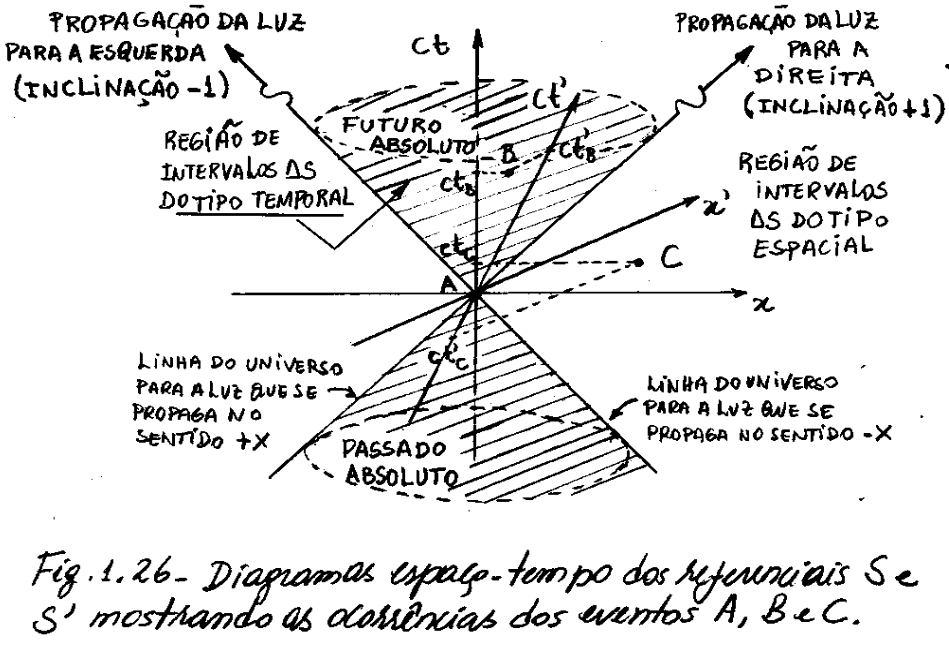 PROPAGAÇÃO DA LUZ
PARA A ESQUERDA
(INCLINAÇÃO -1)
ct
PROPAGAÇÃO DA LUZ
PARA A
DIREITA
(INCLINAÇÃO +1)
REGIÃO DE
INTERVALOS ΔS
DO TIPO TEMPORAL
FUTURO
ABSOLUTO
ct'
B
ct'B
ctB
REGIÃO DE
INTERVALOS
ΔS DO TIPO
ESPACIAL
x'
ctC
C
A
x
ct'C
LINHA DO UNIVERSO
PARA A LUZ QUE SE
PROPAGA NO
SENTIDO +X
LINHA DO UNIVERSO
PARA A LUZ QUE SE
PROPAGA NO SENTIDO -X
PASSADO
ABSOLUTO
Fig. 1.26- Diagramas espaço-tempo dos referenciais S e
S' mostrando as ocorrências dos eventos A, B e C.